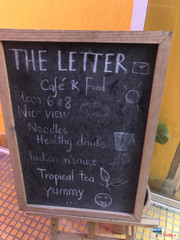 THE LETTER
Café & Food
Floor 6 & 8
Nice view
Noodles
Healthy drinks
Chicken n'sauce
Tropical tea
Yummy